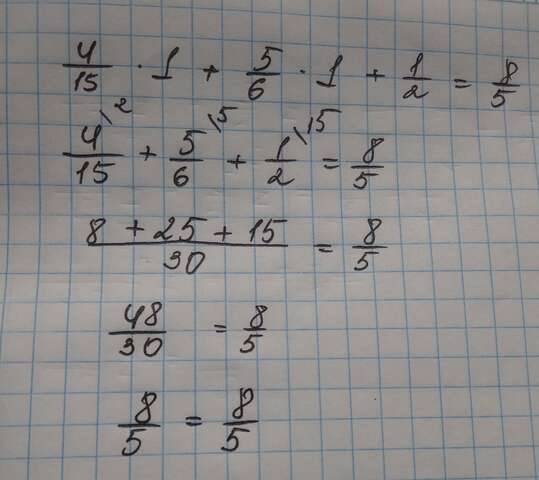 4/15 · 1 + 5/6 · 1 + 1/2 = 8/5
4\2/15 + 5\5/6 + 1\15/2 = 8/5
8 + 25 + 15/30 = 8/5
48/30 = 8/5
8/5 = 8/5